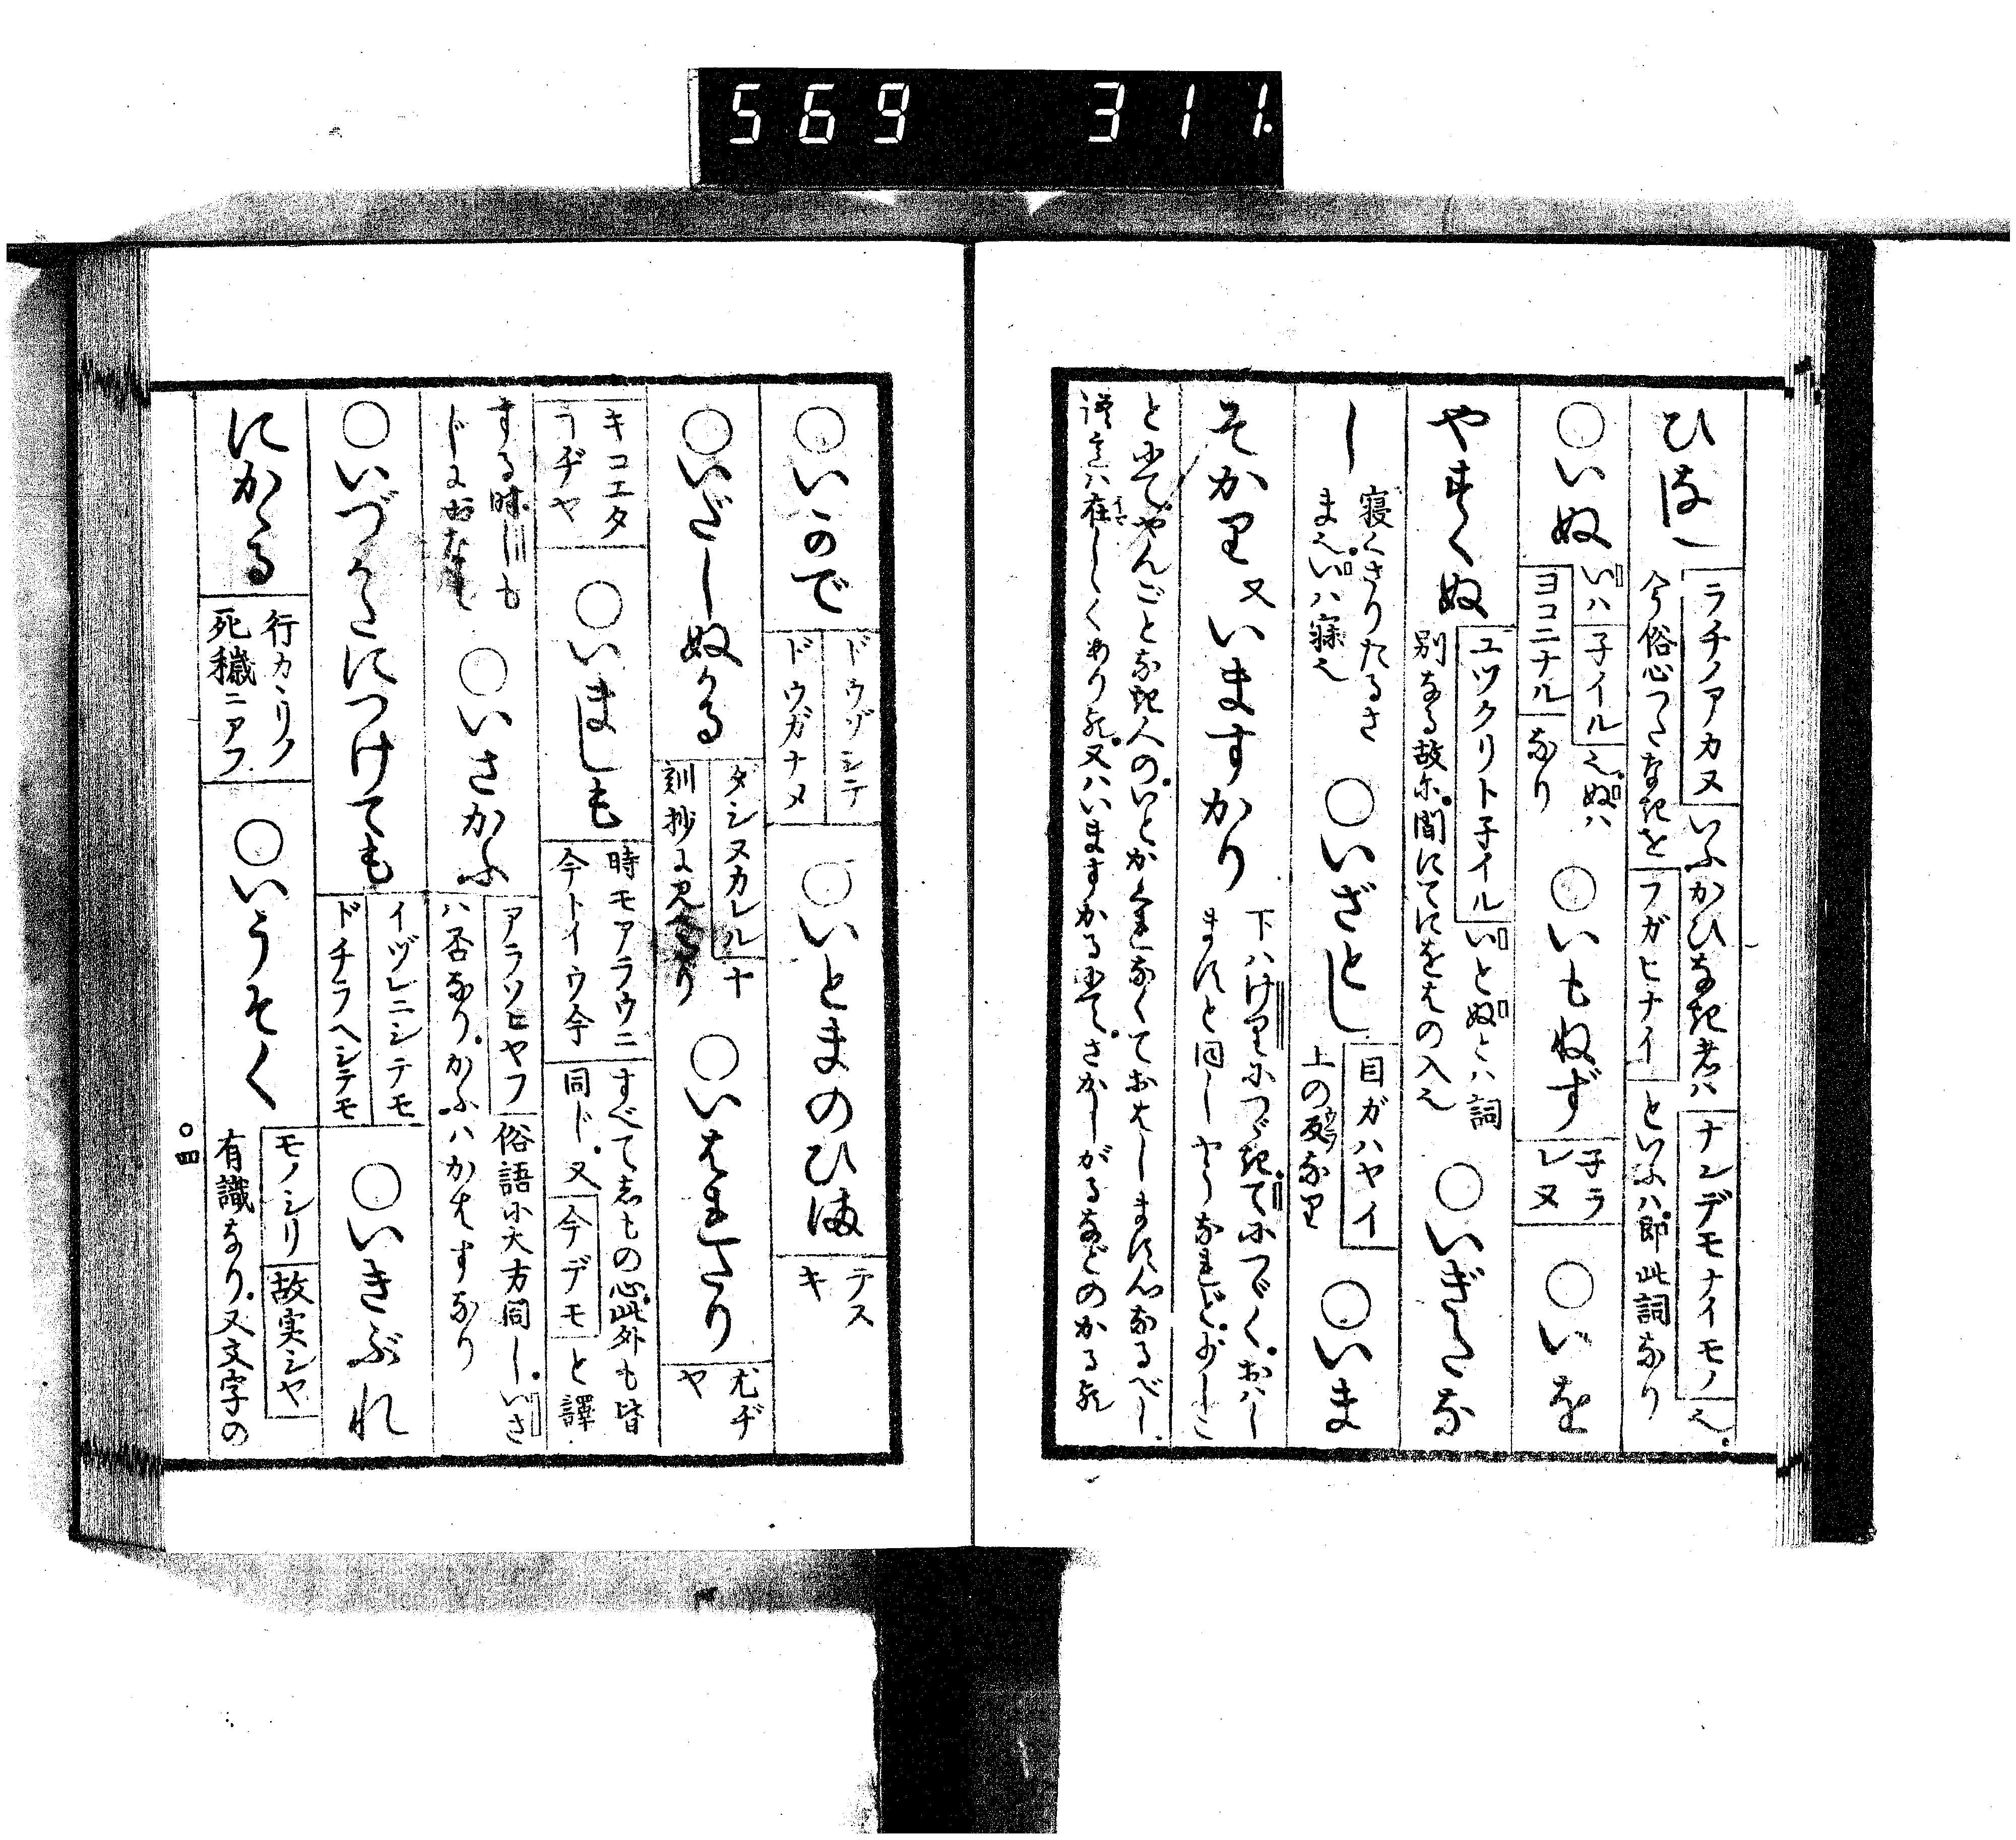 569 311.
ひなし ラチノアカヌ いふかひなき者ハ ナンデモナイモノ 也。
今俗心つたなきを フガヒナイ といふハ即此詞なり
○いぬ いハ 子イル 也。ぬハ
ヨコニナル なり
○いもねず 子ラ
レヌ
○いを
やすくぬ ユツクリト子イル いとぬとハ詞
別なる故に。間にてにをはの入也
○いぎたな
し 寝くさりたるさ
ま也。いハ寐也
○いざとし 目ガハヤイ
上の反なり
○いま
そかり 又いますかり
下ハけりにつゞき。てにつゞく。おハし
ますと同じやうなれど。少しこ
とにて。やんごとなき人の。いとかくれなくておはします心なるべし。
在しくあり 又ハいますかるにて。さかしがるなどのかる
○いかで ドウゾシテ
ドウガナメ
○いとまのひま テス
キ
○いだしぬかる ダシヌカレル ナ
刻抄に見えたり
○いはれたり 尤ヂ
ヤ
キコエタ
ラヂヤ
○いましも 時モアラウニ
今トイウ今
すべてしもの心。此外も皆
同ド。又 今デモ と譯
する時ハしも
ドにおなじ
○いさかふ アラソヒヤフ 俗語に大方同し。いさ
ハ否なり。かふハかはすなり
○いづかたにつけても イヅレニシテモ
ドチラヘシテモ
○いきぶれ
にかゝる 行カヽリノ
死穢ニアフ
○いうそく モノシリ 故実シヤ
有識なり。又文字の
○四